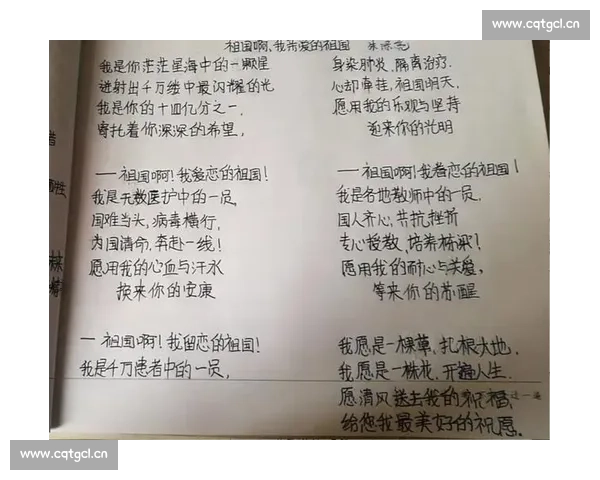 www.cqtgcl.cn
祖国啊,我亲爱的祖国
我是你茫茫星海中的一颗星
迸射出千万缕中最闪耀的光
我是你的十四亿分之一,
寄托着你深深的希望,
一祖国啊!我爱恋的祖国!
我是无数医护中的一员,
国难当头,病毒横行,
为国请命,奔赴一线!
愿用我的心血与汗水
换来你的安康
一祖国啊!我留恋的祖国!
我是千万患者中的一员,
身染肺炎,隔离治疗.
心却牵挂,祖国明天,
愿用我的乐观与坚持
迎来你的光明
一祖国啊!我眷恋的祖国!
我是各地教师中的一员.
国人齐心,共抗挫折
专心授教,培养栋梁!
愿用我的耐心与关爱,
等来你的苏醒
我愿是一棵草,扎根大地.
我愿是一株花,开遍人生.
愿清风送去我的祝福,
给您我最美好的祝愿。
www.cqtgcl.cn